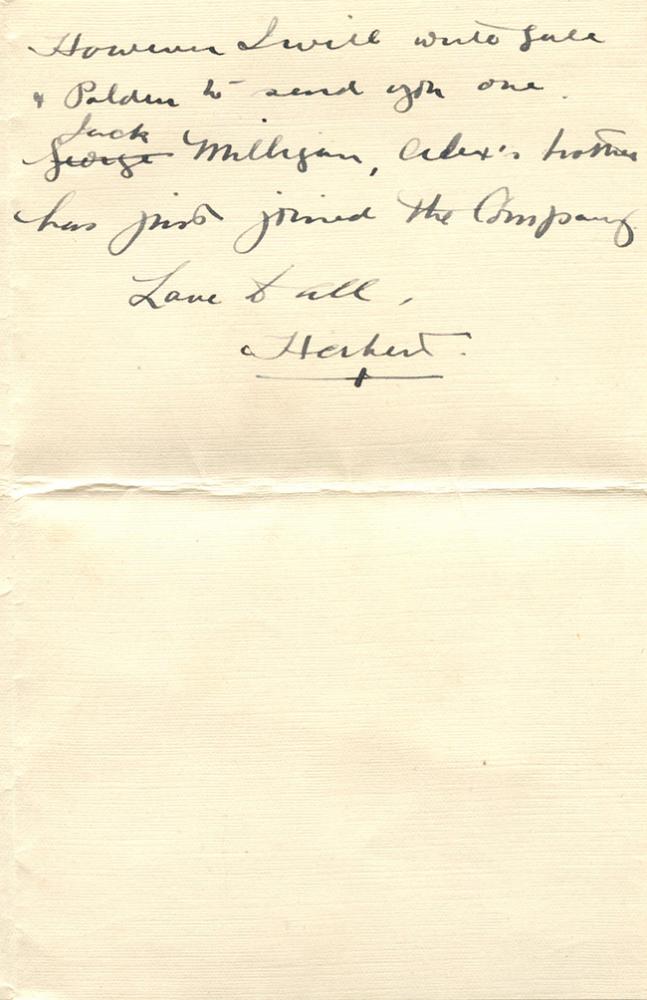 However I will write Gale
& Polden to send you one.
Jack
George Milligan, Alex's brother
has just joined the Company
Love to all,
Herbert.